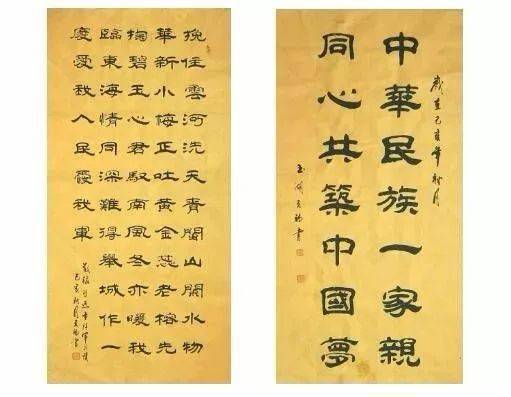 挽住雲河洗天青閩山閩水物
華新小梅正吐黃金蕊老榕先
掬碧玉心君馭南風冬亦暖我
臨東海情同深難得舉城作一
慶愛我人民愛我軍
己亥秋月
歲在己亥年秋月
中華民族一家親
同心共築中國夢